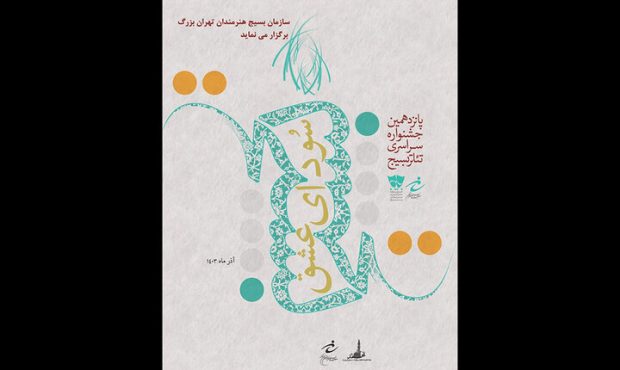 سازمان بسیج هنرمندان تهران بزرگ
برگزار می نماید
پانزدهمین
جشنواره
سراسری
تئاتر بسیج
سودای عشق
آذر ماه ۱۴۰۳